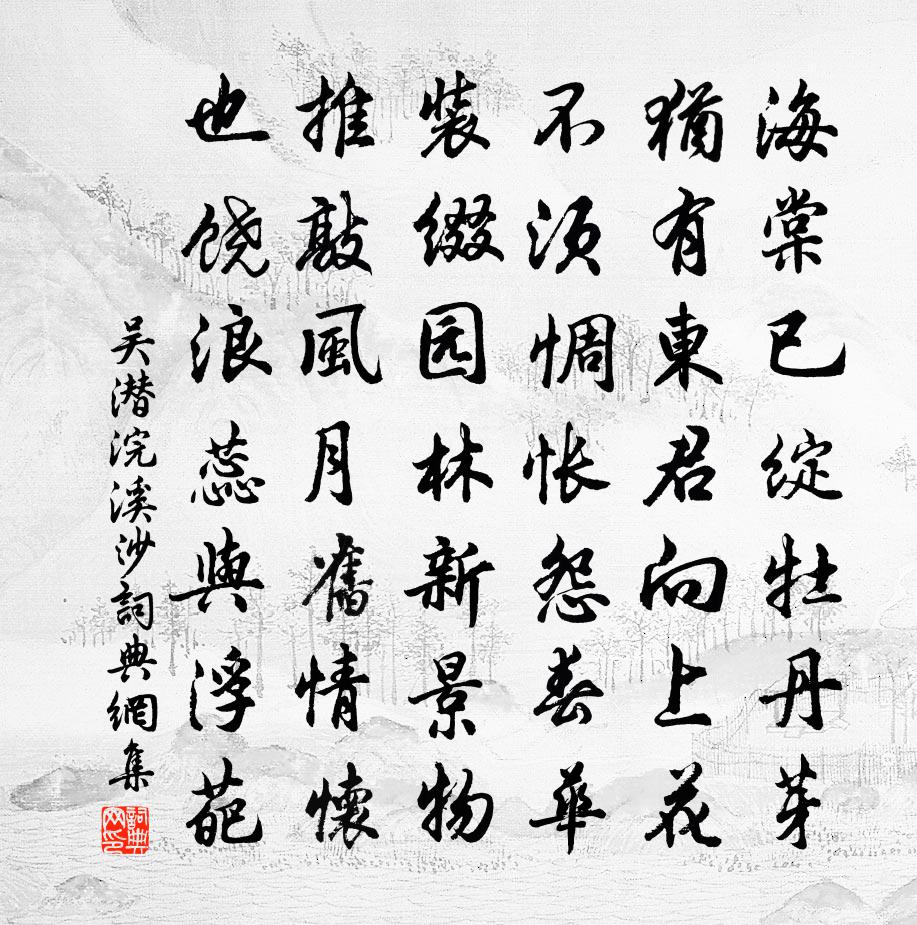 海棠已绽牡丹芽
犹有東君向上花
不须惆怅怨春華
装缀园林新景物
推敲風月舊情懷
也饶浪蕊與浮葩
吴潜浣溪沙詞典網集
詞典网印